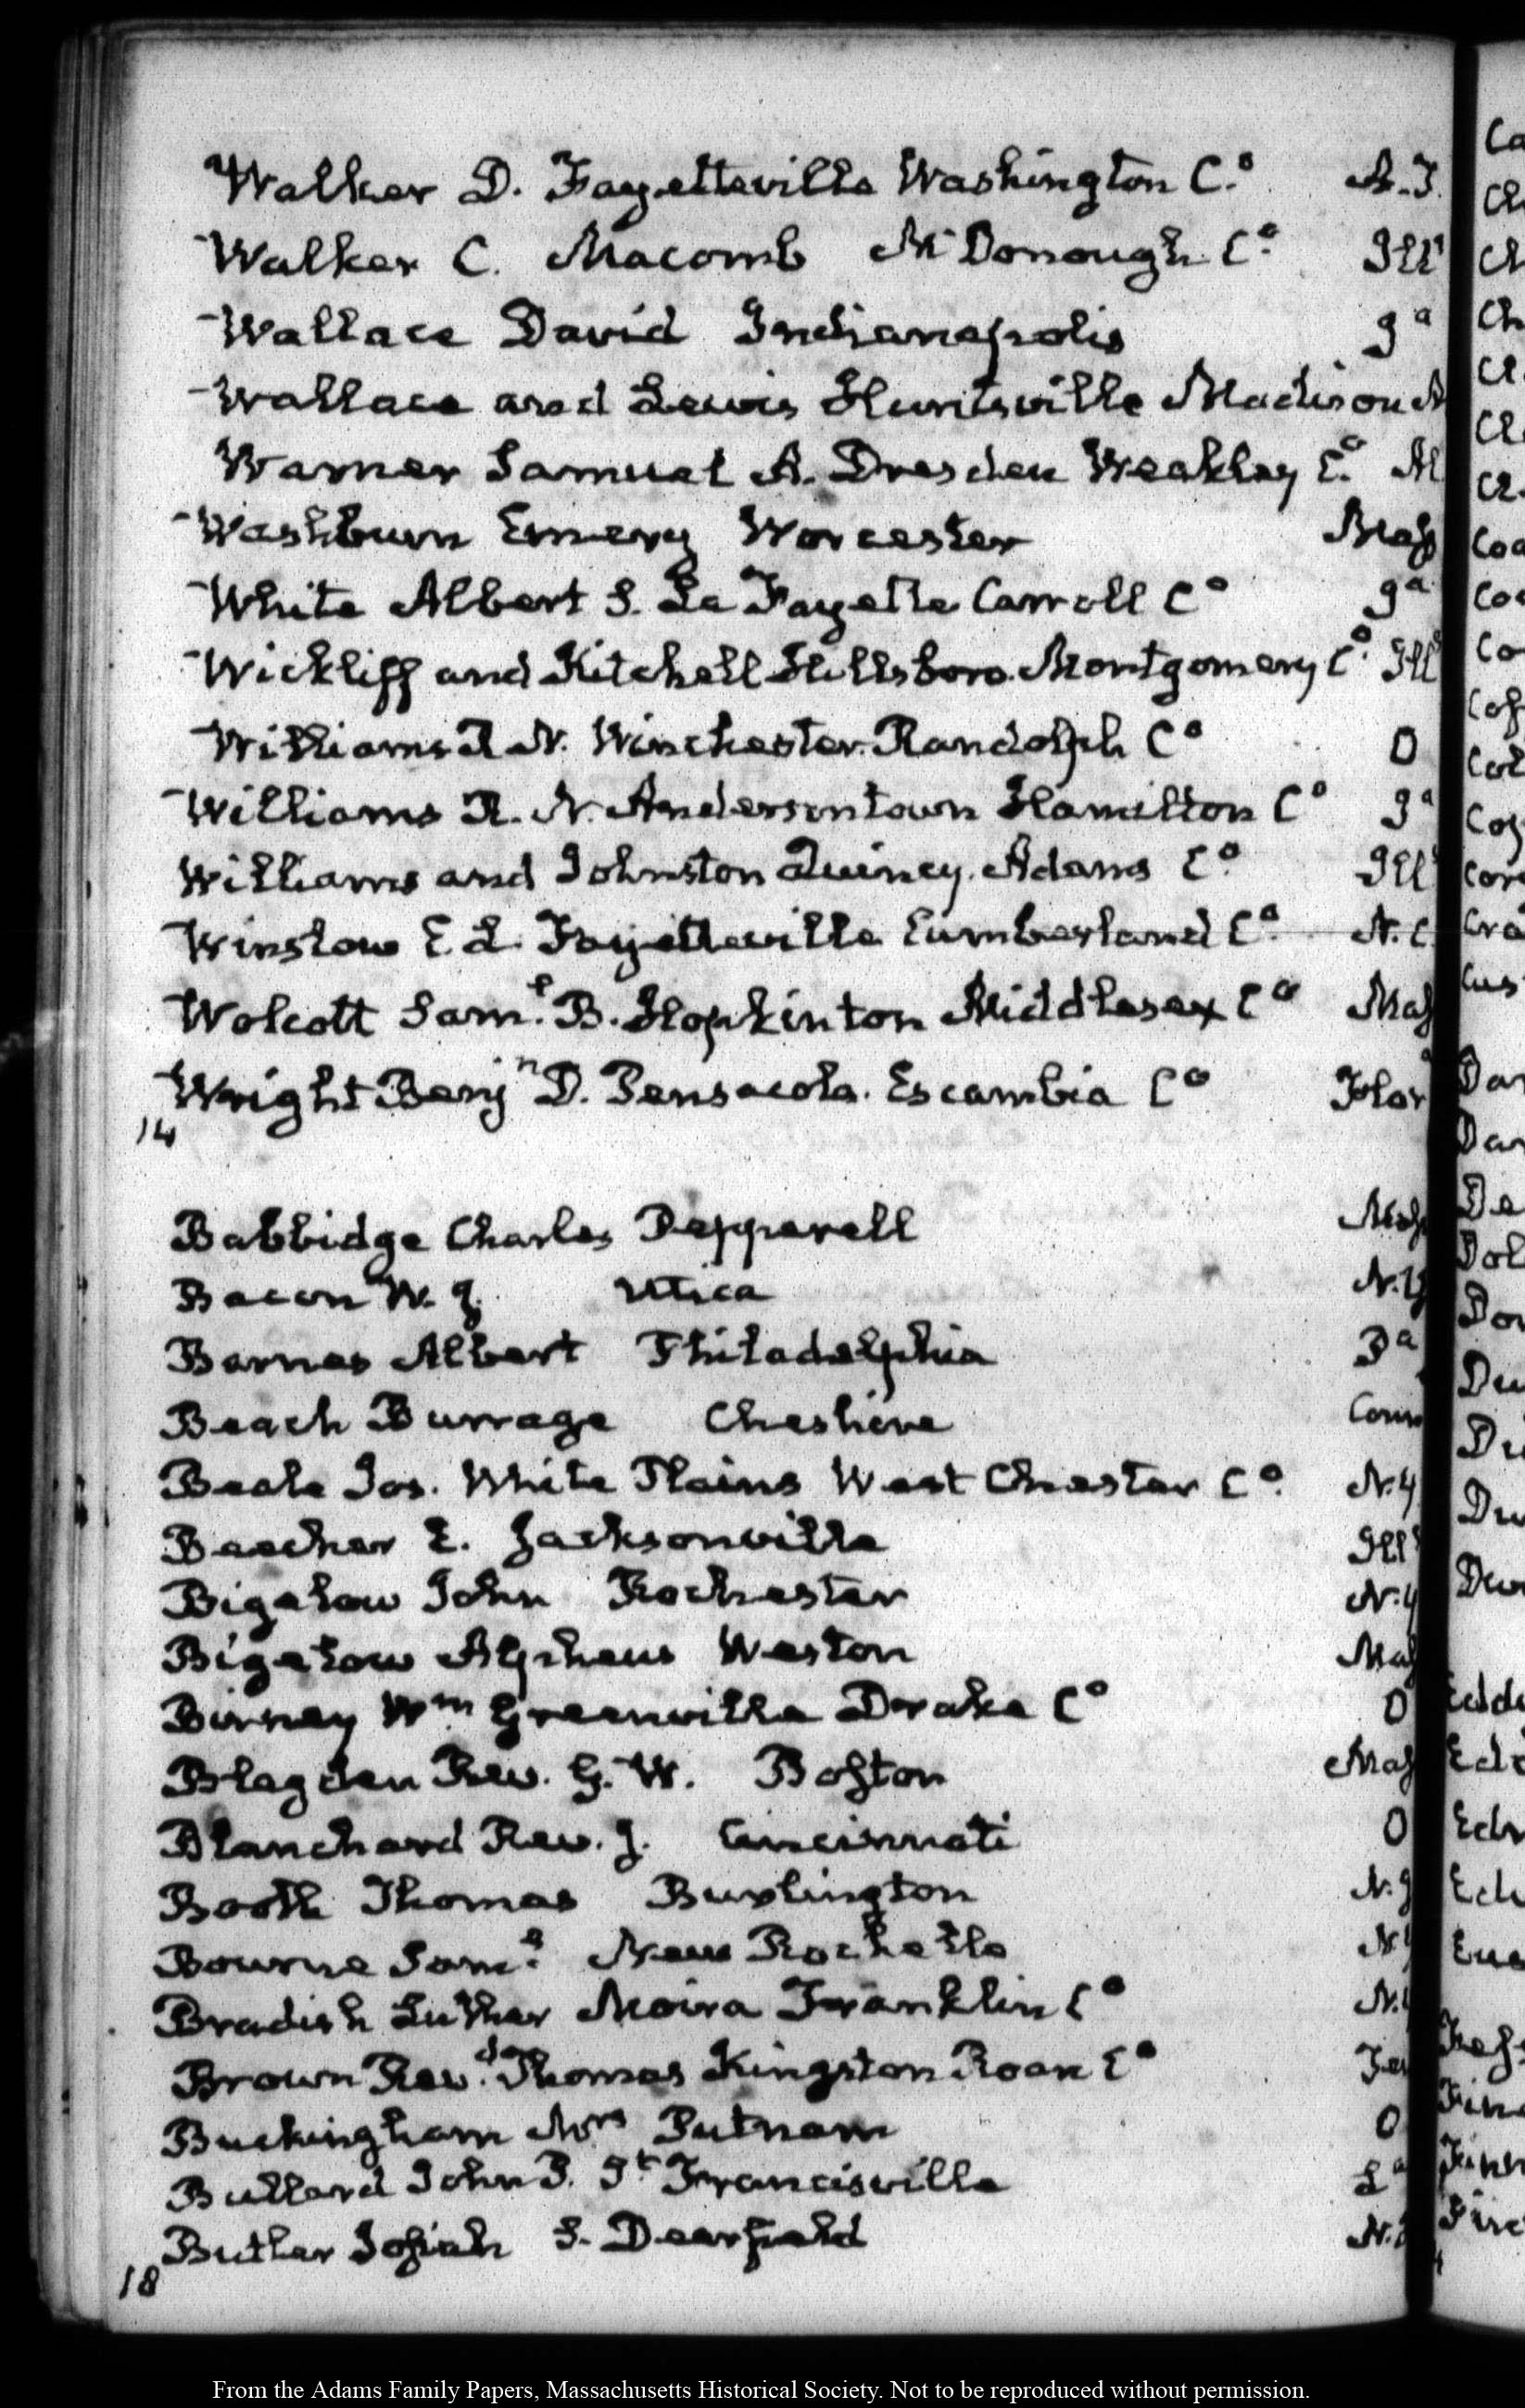 Walker D. Fayetteville Washington Co. A.T.
Walker C. Macomb McDonough Co. Ills
Wallace David Indianapolis Ia
Wallace and Lewis Huntsville Madison A
Warner Samuel A. Dresden Weakley Co. Al
Washburn Emery Worcester Mass
White Albert S. La Fayette Carroll Co Ia
Wickliff and Kitchell Hillsboro Montgomery Co. Ills
Williams R N. Winchester Randolph Co O
Williams R. N. Andersontown Hamilton Co Ia
Williams and Johnston Quincy. Adams Co. Ills
Winslow E L. Fayetteville Cumberland Co. N.C.
Wolcott Saml. B. Hopkinton Middlesex Co Mass
Wright Benjn D. Pensacola. Escambia Co Flor
14
Babbidge Charles Pepperell Mass
Bacon W. J. Utica N.Y
Barnes Albert Philadelphia Pa
Beach Burrage Cheshire Conn
Beale Jos. White Plains West Chester Co. N.Y
Beecher E. Jacksonville Ills
Bigelow John Rochester N.Y
Bigelow Alpheus Weston Mass
Birney Wm Greenville Drake Co O
Blagden Rev. G. W. Boston Mass
Blanchard Rev. J. Cincinnati O
Booth Thomas Burlington N.J
Bourne Saml. New Rochelle N.Y
Bradish Luther Moira Franklin Co N.Y
Brown Revd. Thomas Kingston Roan Co Ten
Buckingham Mrs Putnam O
Bullard John P. St Francisville La
Butler Josiah S. Deerfield N.
18
Ca
Ch
Ch
Ch
Cl
Cl
Cl
Coa
Co
Co
Cof
Col
Co
Cor
Cra
Cus
Dar
Dar
De
Dol
Do
Du
Du
Du
Dw
Edd
Ed
Edw
Ed
Fes
Fin
Fin
From the Adams Family Papers, Massachusetts Historical Society. Not to be reproduced without permission.